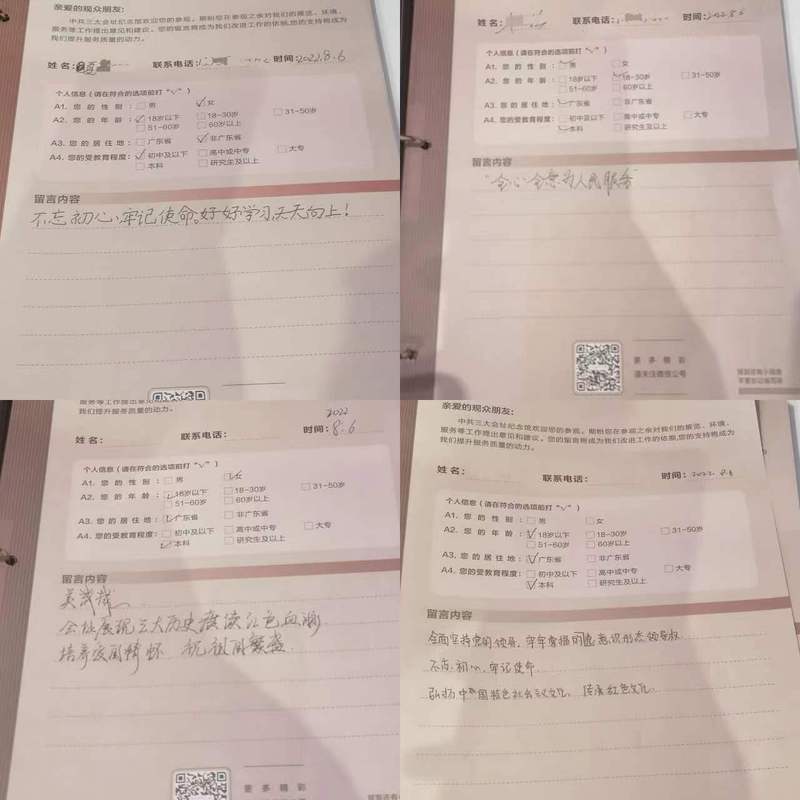 亲爱的观众朋友:
中共三大会址纪念馆欢迎您的参观。期盼您在参观之余对我们的展览、环境、
服务等工作提出意见和建议。您的留言将成为我们改进工作的依据,您的支持将成为
我们提升服务质量的动力。
姓名: 联系电话: 时间:2022.8.6
个人信息(请在符合的选项前打“√”)
A1. 您的性别: 男 √女
A2. 您的年龄: √18岁以下 18-30岁 31-50岁
51-60岁 60岁以上
A3. 您的居住地: 广东省 √非广东省
A4. 您的受教育程度: √初中及以下 高中或中专 大专
本科 研究生及以上
留言内容
不忘初心,牢记使命。好好学习,天天向上!
姓名: 联系电话: 时间:2022.8.6
个人信息(请在符合的选项前打“√”)
A1. 您的性别: 男 女
A2. 您的年龄: 18岁以下 18-30岁 31-50岁
51-60岁 60岁以上
A3. 您的居住地: 广东省 非广东省
A4. 您的受教育程度: 初中及以下 高中或中专 大专
本科 研究生及以上
留言内容
“全心全意为人民服务”
更多精彩
请关注微信公众号
服务等工作提出意见和建议
我们提升服务质量的动力。
姓名: 联系电话: 时间:2022
8.6
个人信息(请在符合的选项前打“√”)
A1. 您的性别: 男 女
A2. 您的年龄: 18岁以下 18-30岁 31-50岁
51-60岁 60岁以上
A3. 您的居住地: 广东省 非广东省
A4. 您的受教育程度: 初中及以下 高中或中专 大专
本科 研究生及以上
留言内容
会址展现三大历史 红色血脉
培养爱国情怀 祝祖国繁盛.
更多精彩
亲爱的观众朋友:
中共三大会址纪念馆欢迎您的参观。期盼您在参观之余对我们的展览、环境、
服务等工作提出意见和建议。您的留言将成为我们改进工作的依据,您的支持将成为
我们提升服务质量的动力。
姓名: 联系电话: 时间:2022.8.6
个人信息(请在符合的选项前打“√”)
A1. 您的性别: 男 女
A2. 您的年龄: √18岁以下 18-30岁 31-50岁
51-60岁 60岁以上
A3. 您的居住地: √广东省 非广东省
A4. 您的受教育程度: 初中及以下 高中或中专 大专
√本科 研究生及以上
留言内容
全面坚持党的领导,牢牢掌握 意识形态领导权
不忘初心,牢记使命
弘扬中国特色社会主义文化,传承红色文化.